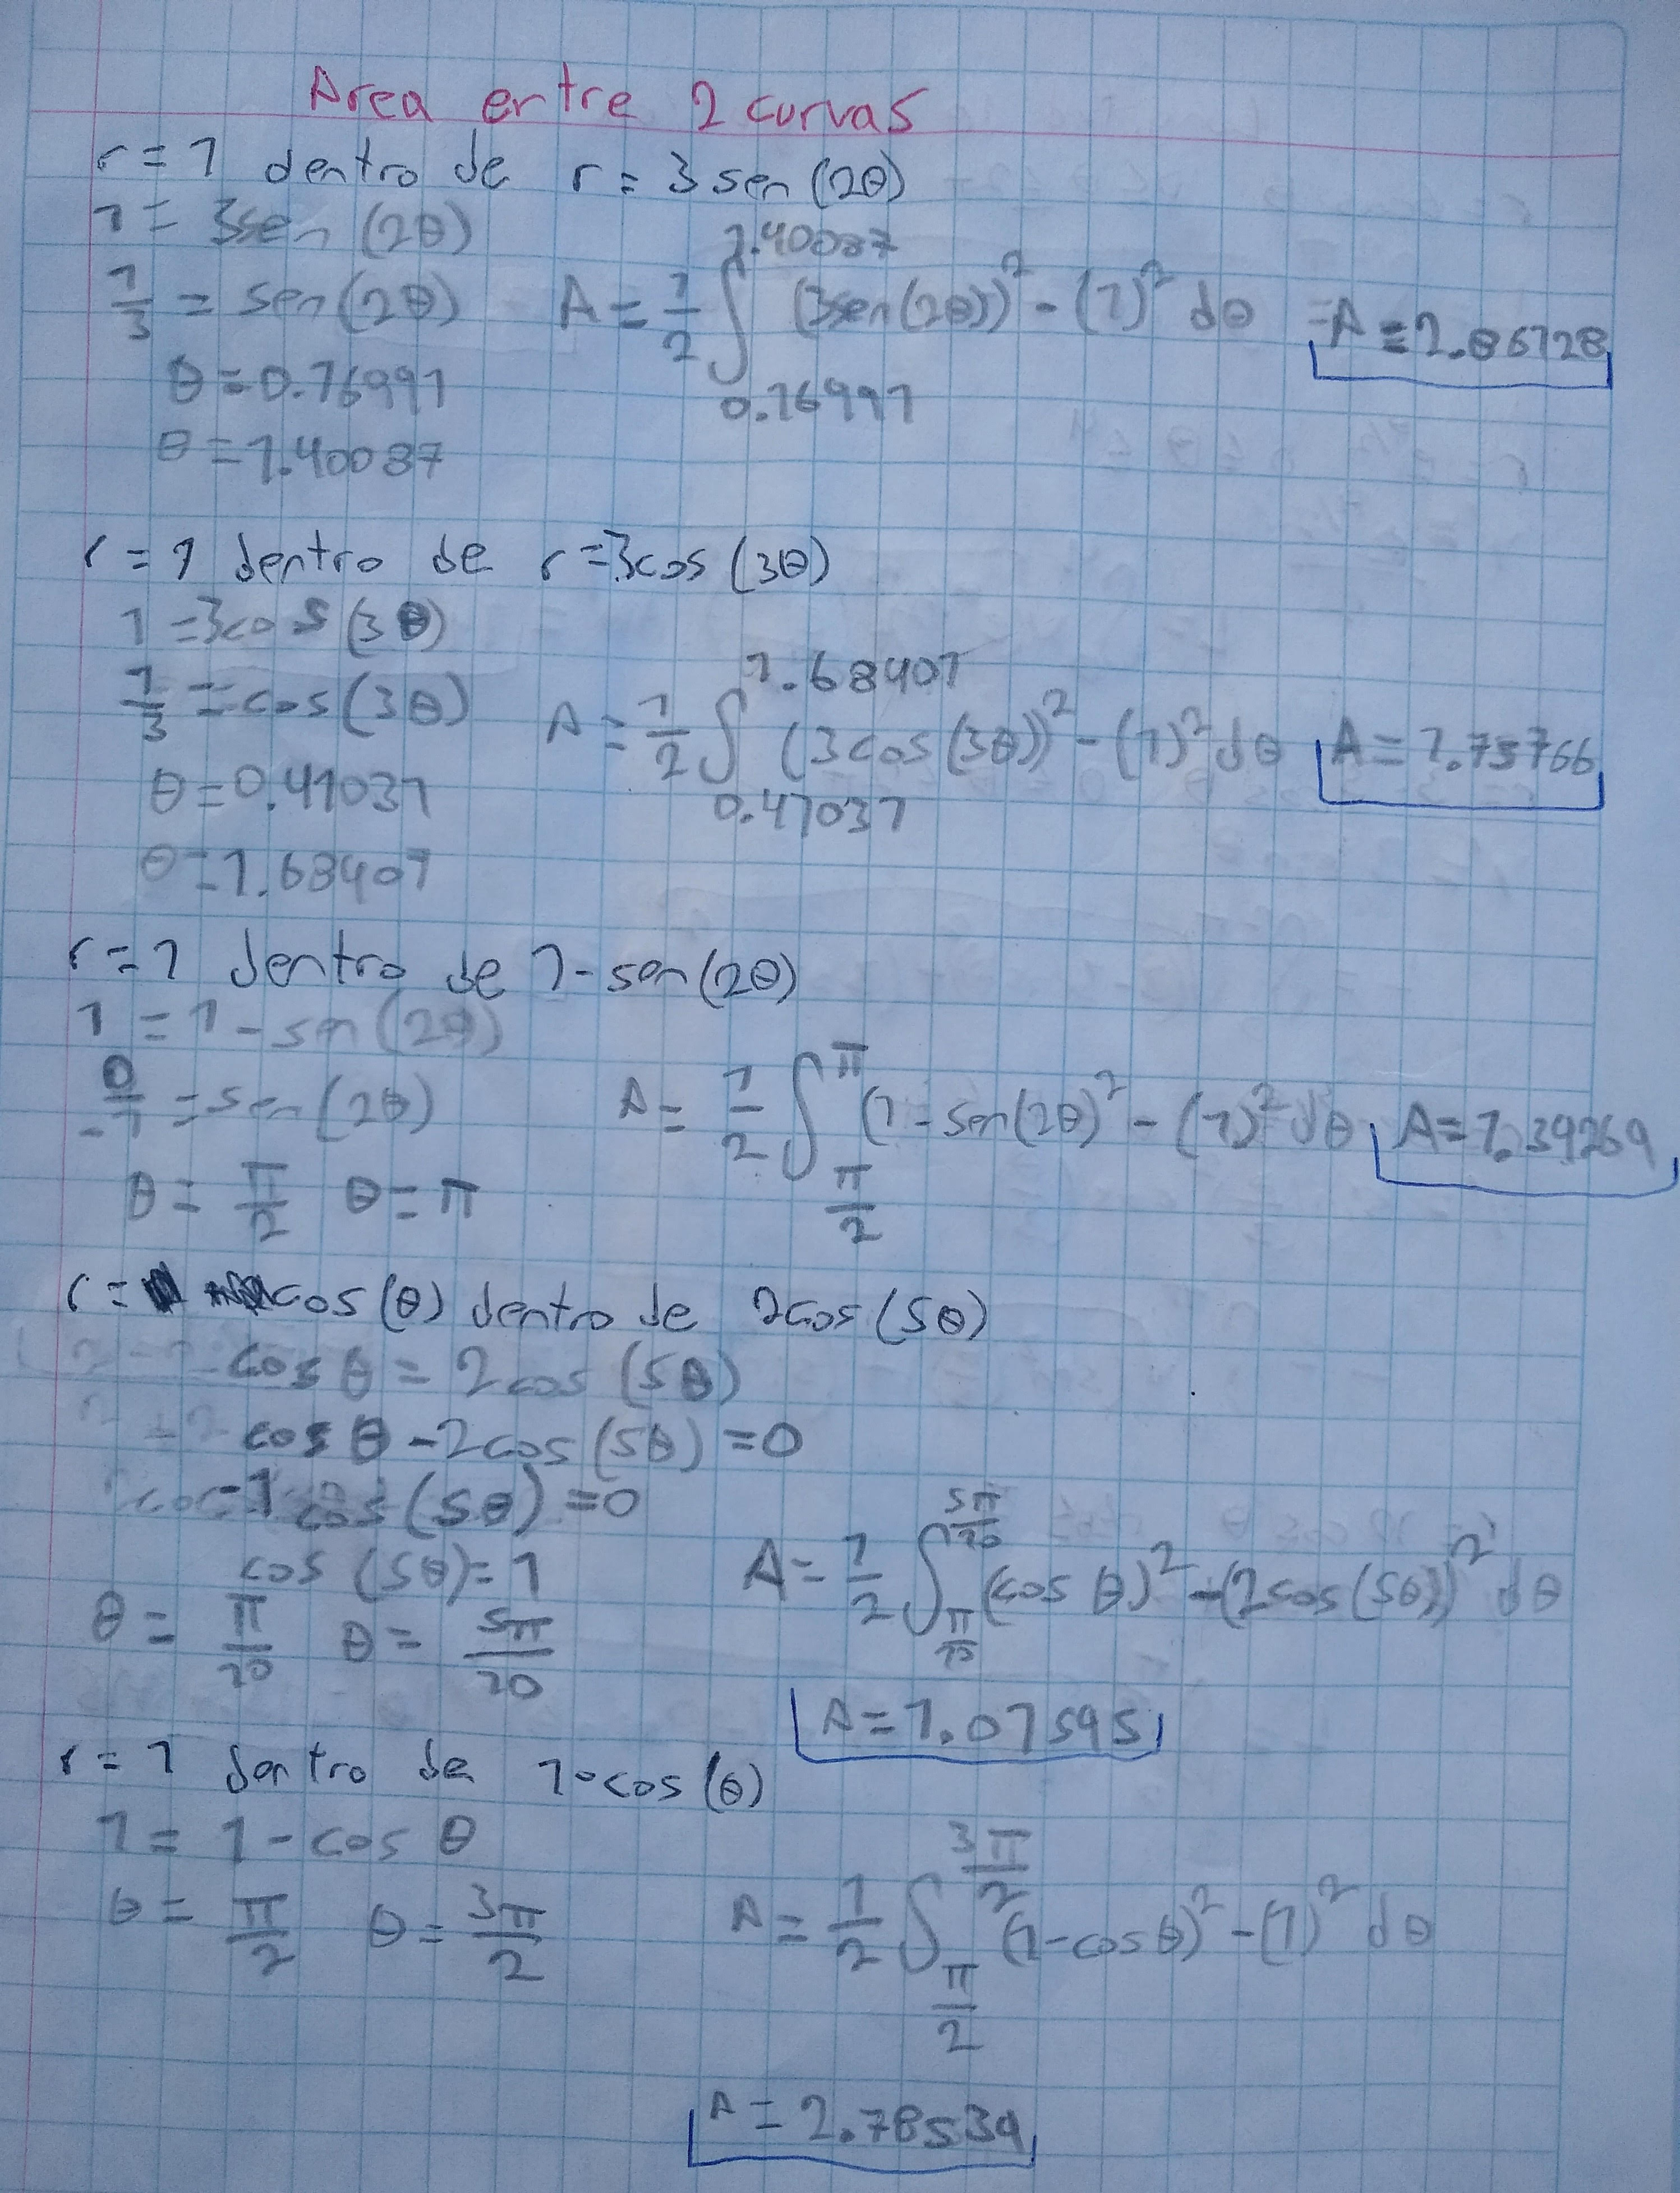 Area entre 2 curvas
r = 1 dentro de r = 3 sen (2θ)
1 = 3sen (2θ)
1/3 = sen(2θ)
θ = 0.16991
θ = 1.40087
A = 1/2 ∫ 1.40087 0.16991 (3sen(2θ))² - (1)² dθ = A = 2.86728
r = 1 dentro de r = 3cos (3θ)
1 = 3cos (3θ)
1/3 = cos(3θ)
θ = 0.41037
θ = 1.68407
A = 1/2 ∫ 1.68407 0.41037 (3cos(3θ))² - (1)² dθ A = 1.75766
r = 1 dentro de 1 - sen(2θ)
1 = 1 - sen(2θ)
0/-1 = sen(2θ)
θ = π/2 θ = π
A = 1/2 ∫ π π/2 (1 - sen(2θ)² - (1)² dθ A = 1.39269
r = cos(θ) dentro de 2cos(5θ)
cos θ = 2cos (5θ)
cos θ - 2cos (5θ) = 0
-1 cos (5θ) = 0
cos (5θ) = 1
θ = π/20 θ = 5π/20
A = 1/2 ∫ 5π/20 π/15 (cos θ)² - (2cos(5θ))² dθ
A = 1.07595
r = 1 dentro de 1 - cos(θ)
1 = 1 - cos θ
θ = π/2 θ = 3π/2
A = 1/2 ∫ 3π/2 π/2 (1 - cos θ)² - (1)² dθ
A = 2.78539